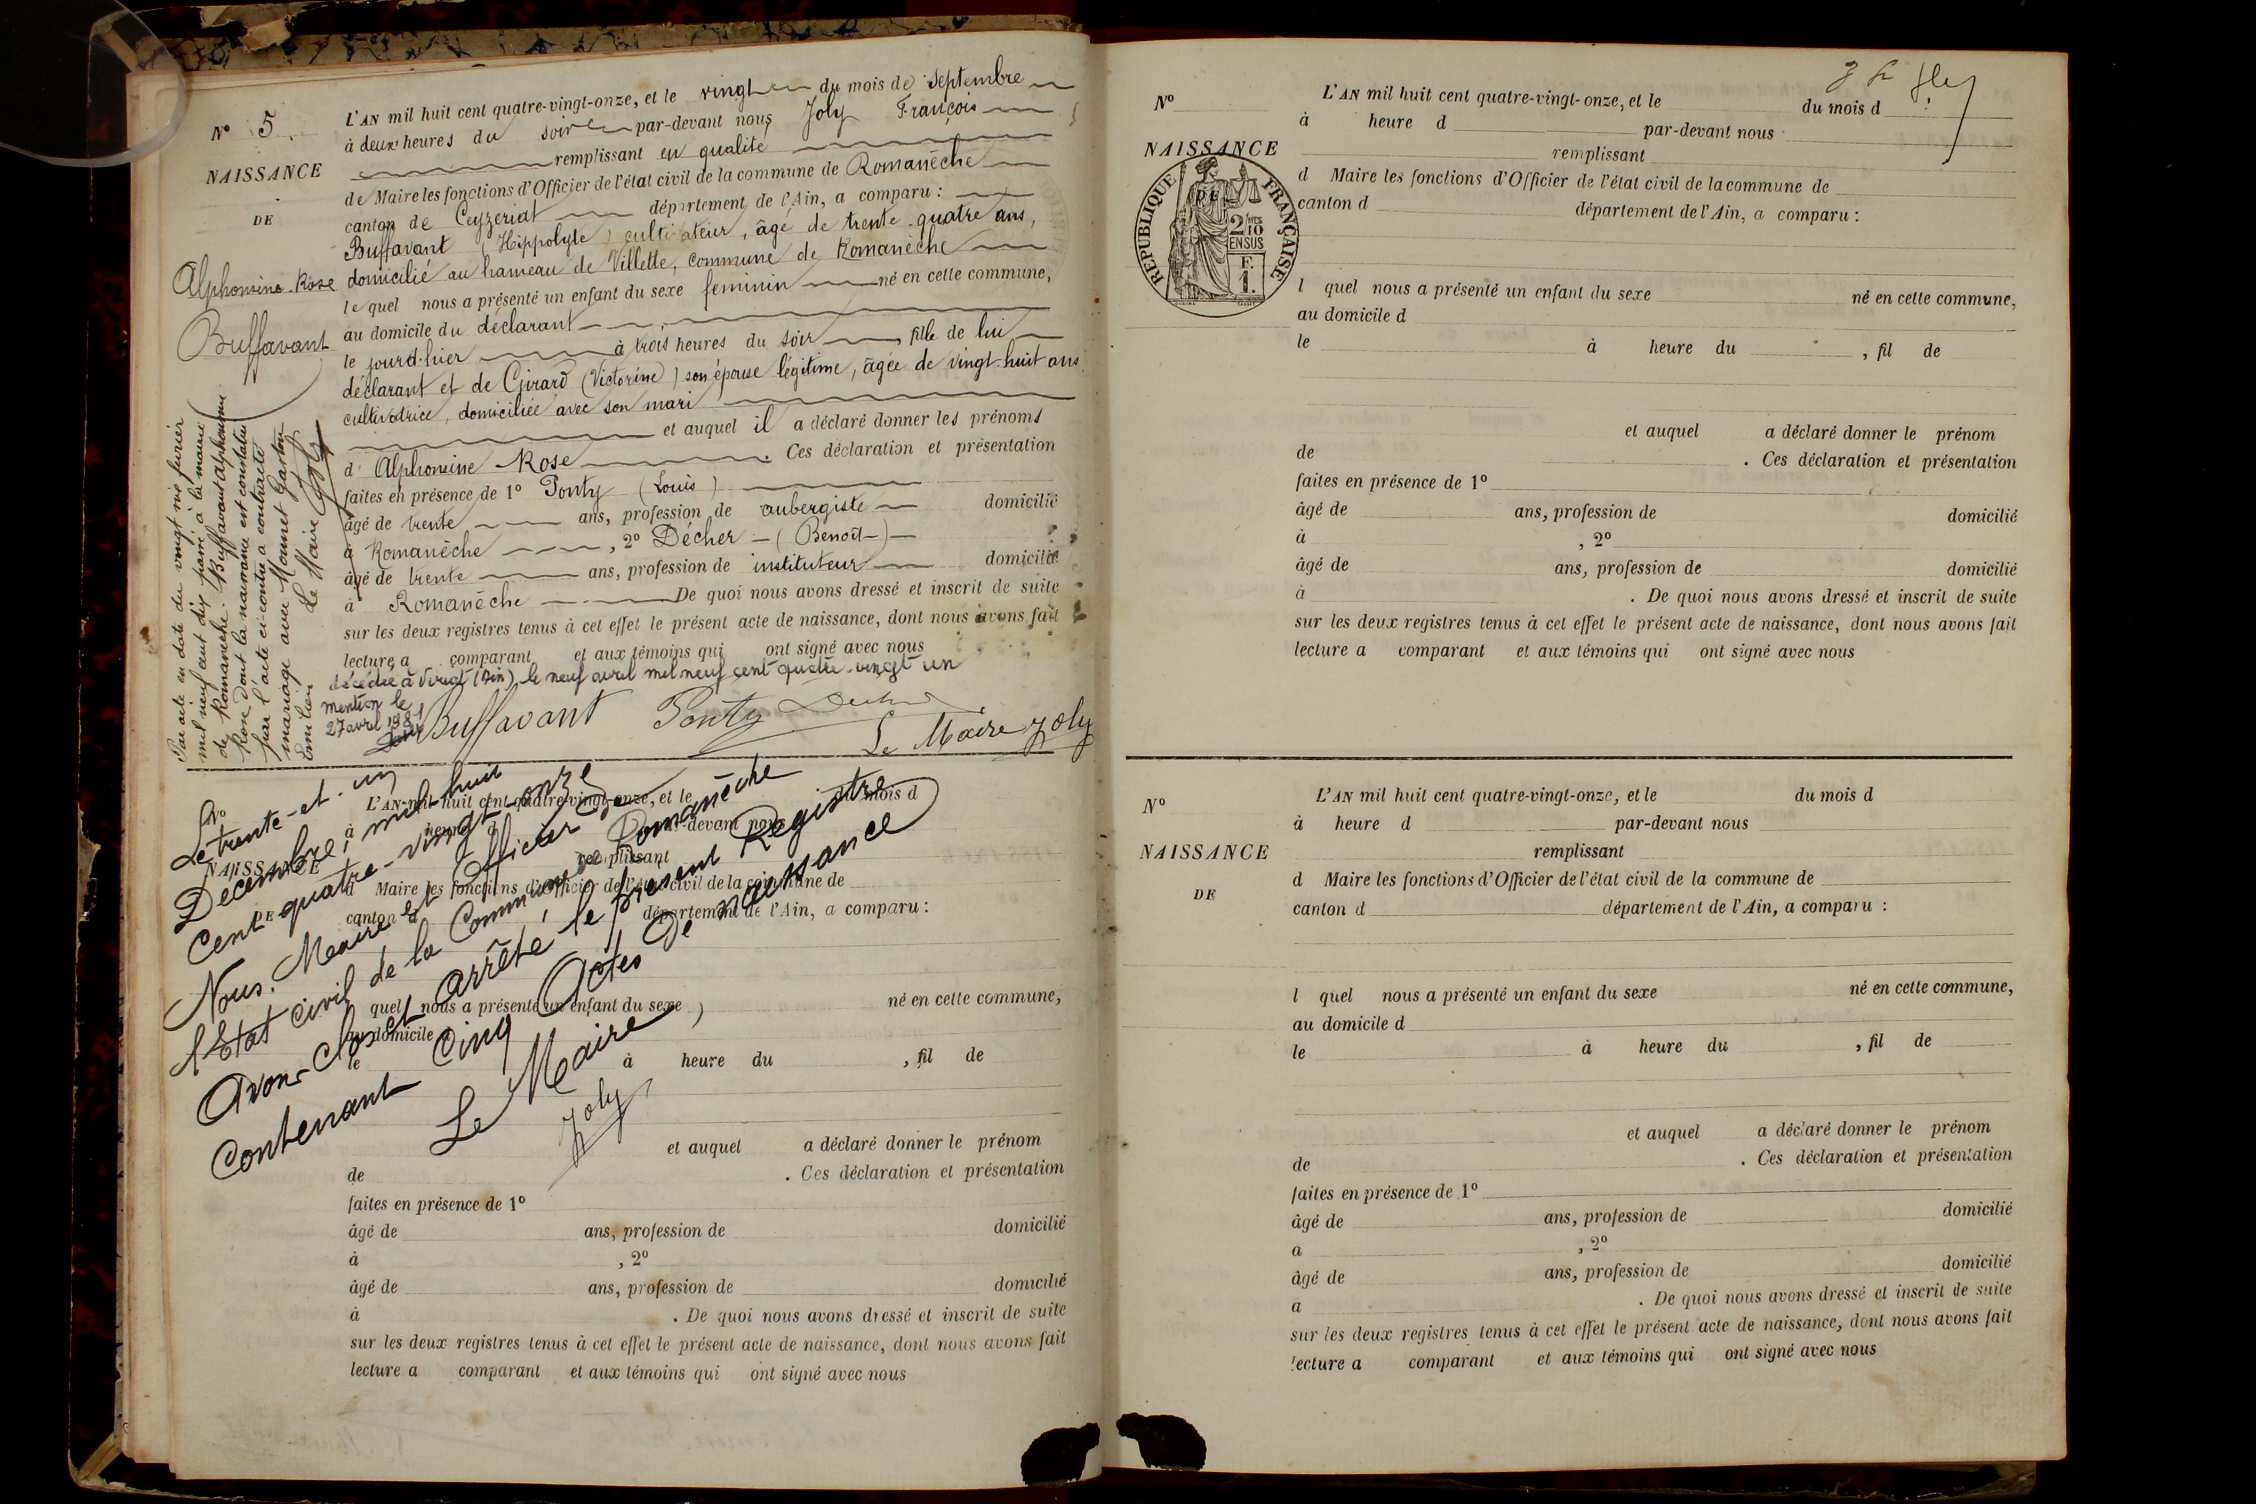 N° 5
NAISSANCE
DE
Alphonsine Rose
Buffavant
L'AN mil huit cent quatre-vingt-onze, et le vingt du mois de Septembre
à deux heures du soir par-devant nous Joly François
remplissant en qualité
de Maire les fonctions d'Officier de l'état civil de la commune de Romanèche
canton de Ceyzeriat département de l'Ain, a comparu :
Buffavant (Hippolyte) cultivateur, âgé de trente-quatre ans,
domicilié au hameau de Villette, commune de Romanèche
lequel nous a présenté un enfant du sexe féminin né en cette commune,
au domicile du déclarant
le jour d'hier à trois heures du soir, fille de lui
déclarant et de Girard (Victorine) son épouse légitime, âgée de vingt-huit ans
cultivatrice, domiciliée avec son mari
et auquel il a déclaré donner les prénoms
d' Alphonsine Rose. Ces déclaration et présentation
faites en présence de 1° Ponty (Louis)
âgé de trente ans, profession de aubergiste domicilié
à Romanèche, 2° Décher (Benoît)
âgé de trente ans, profession de instituteur domicilié
à Romanèche De quoi nous avons dressé et inscrit de suite
sur les deux registres tenus à cet effet le présent acte de naissance, dont nous avons fait
lecture a comparant et aux témoins qui ont signé avec nous
décédée à Viriat (Ain), le neuf avril mil neuf cent quatre-vingt un
mention le
27 avril 1981
Buffavant Ponty Décher
Le Maire Joly
Par acte en date du vingt six février
mil neuf cent dix passé à la mairie
de Romanèche. Buffavant Alphonsine
Rose dont la naissance est constatée
par l'acte ci-contre a contracté
mariage avec Monnet Gaston
Emilien Le Maire Joly
N°
NAISSANCE
DE
L'AN mil huit cent quatre-vingt-onze, et le du mois d
à heure d par-devant nous
remplissant
d Maire les fonctions d'Officier de l'état civil de la commune de
canton d département de l'Ain, a comparu :
l quel nous a présenté un enfant du sexe né en cette commune,
au domicile
le à heure du , fil de
et auquel a déclaré donner le prénom
de . Ces déclaration et présentation
faites en présence de 1°
âgé de ans, profession de domicilié
à , 2°
âgé de ans, profession de domicilié
à . De quoi nous avons dressé et inscrit de suite
sur les deux registres tenus à cet effet le présent acte de naissance, dont nous avons fait
lecture a comparant et aux témoins qui ont signé avec nous
Le trente-et-un
Décembre, mil huit
cent quatre-vingt-onze
Nous, Maire et Officier de
l'Etat civil de la Commune de Romanèche
Avons clos et arrêté le présent Registre
Contenant cinq Actes de naissance
Le Maire
Joly
N°
NAISSANCE
DE
RÉPUBLIQUE FRANÇAISE
2/10
EN SUS
F.
1.
L'AN mil huit cent quatre-vingt-onze, et le du mois d
à heure d par-devant nous
remplissant
d Maire les fonctions d'Officier de l'état civil de la commune de
canton d département de l'Ain, a comparu :
l quel nous a présenté un enfant du sexe né en cette commune,
au domicile d
le à heure du , fil de
et auquel a déclaré donner le prénom
de . Ces déclaration et présentation
faites en présence de 1°
âgé de ans, profession de domicilié
à , 2°
âgé de ans, profession de domicilié
à . De quoi nous avons dressé et inscrit de suite
sur les deux registres tenus à cet effet le présent acte de naissance, dont nous avons fait
lecture a comparant et aux témoins qui ont signé avec nous
N°
NAISSANCE
DE
L'AN mil huit cent quatre-vingt-onze, et le du mois d
à heure d par-devant nous
remplissant
d Maire les fonctions d'Officier de l'état civil de la commune de
canton d département de l'Ain, a comparu :
l quel nous a présenté un enfant du sexe né en cette commune,
au domicile d
le à heure du , fil de
et auquel a déclaré donner le prénom
de . Ces déclaration et présentation
faites en présence de 1°
âgé de ans, profession de domicilié
a , 2°
âgé de ans, profession de domicilié
a . De quoi nous avons dressé et inscrit de suite
sur les deux registres tenus à cet effet le présent acte de naissance, dont nous avons fait
lecture a comparant et aux témoins qui ont signé avec nous